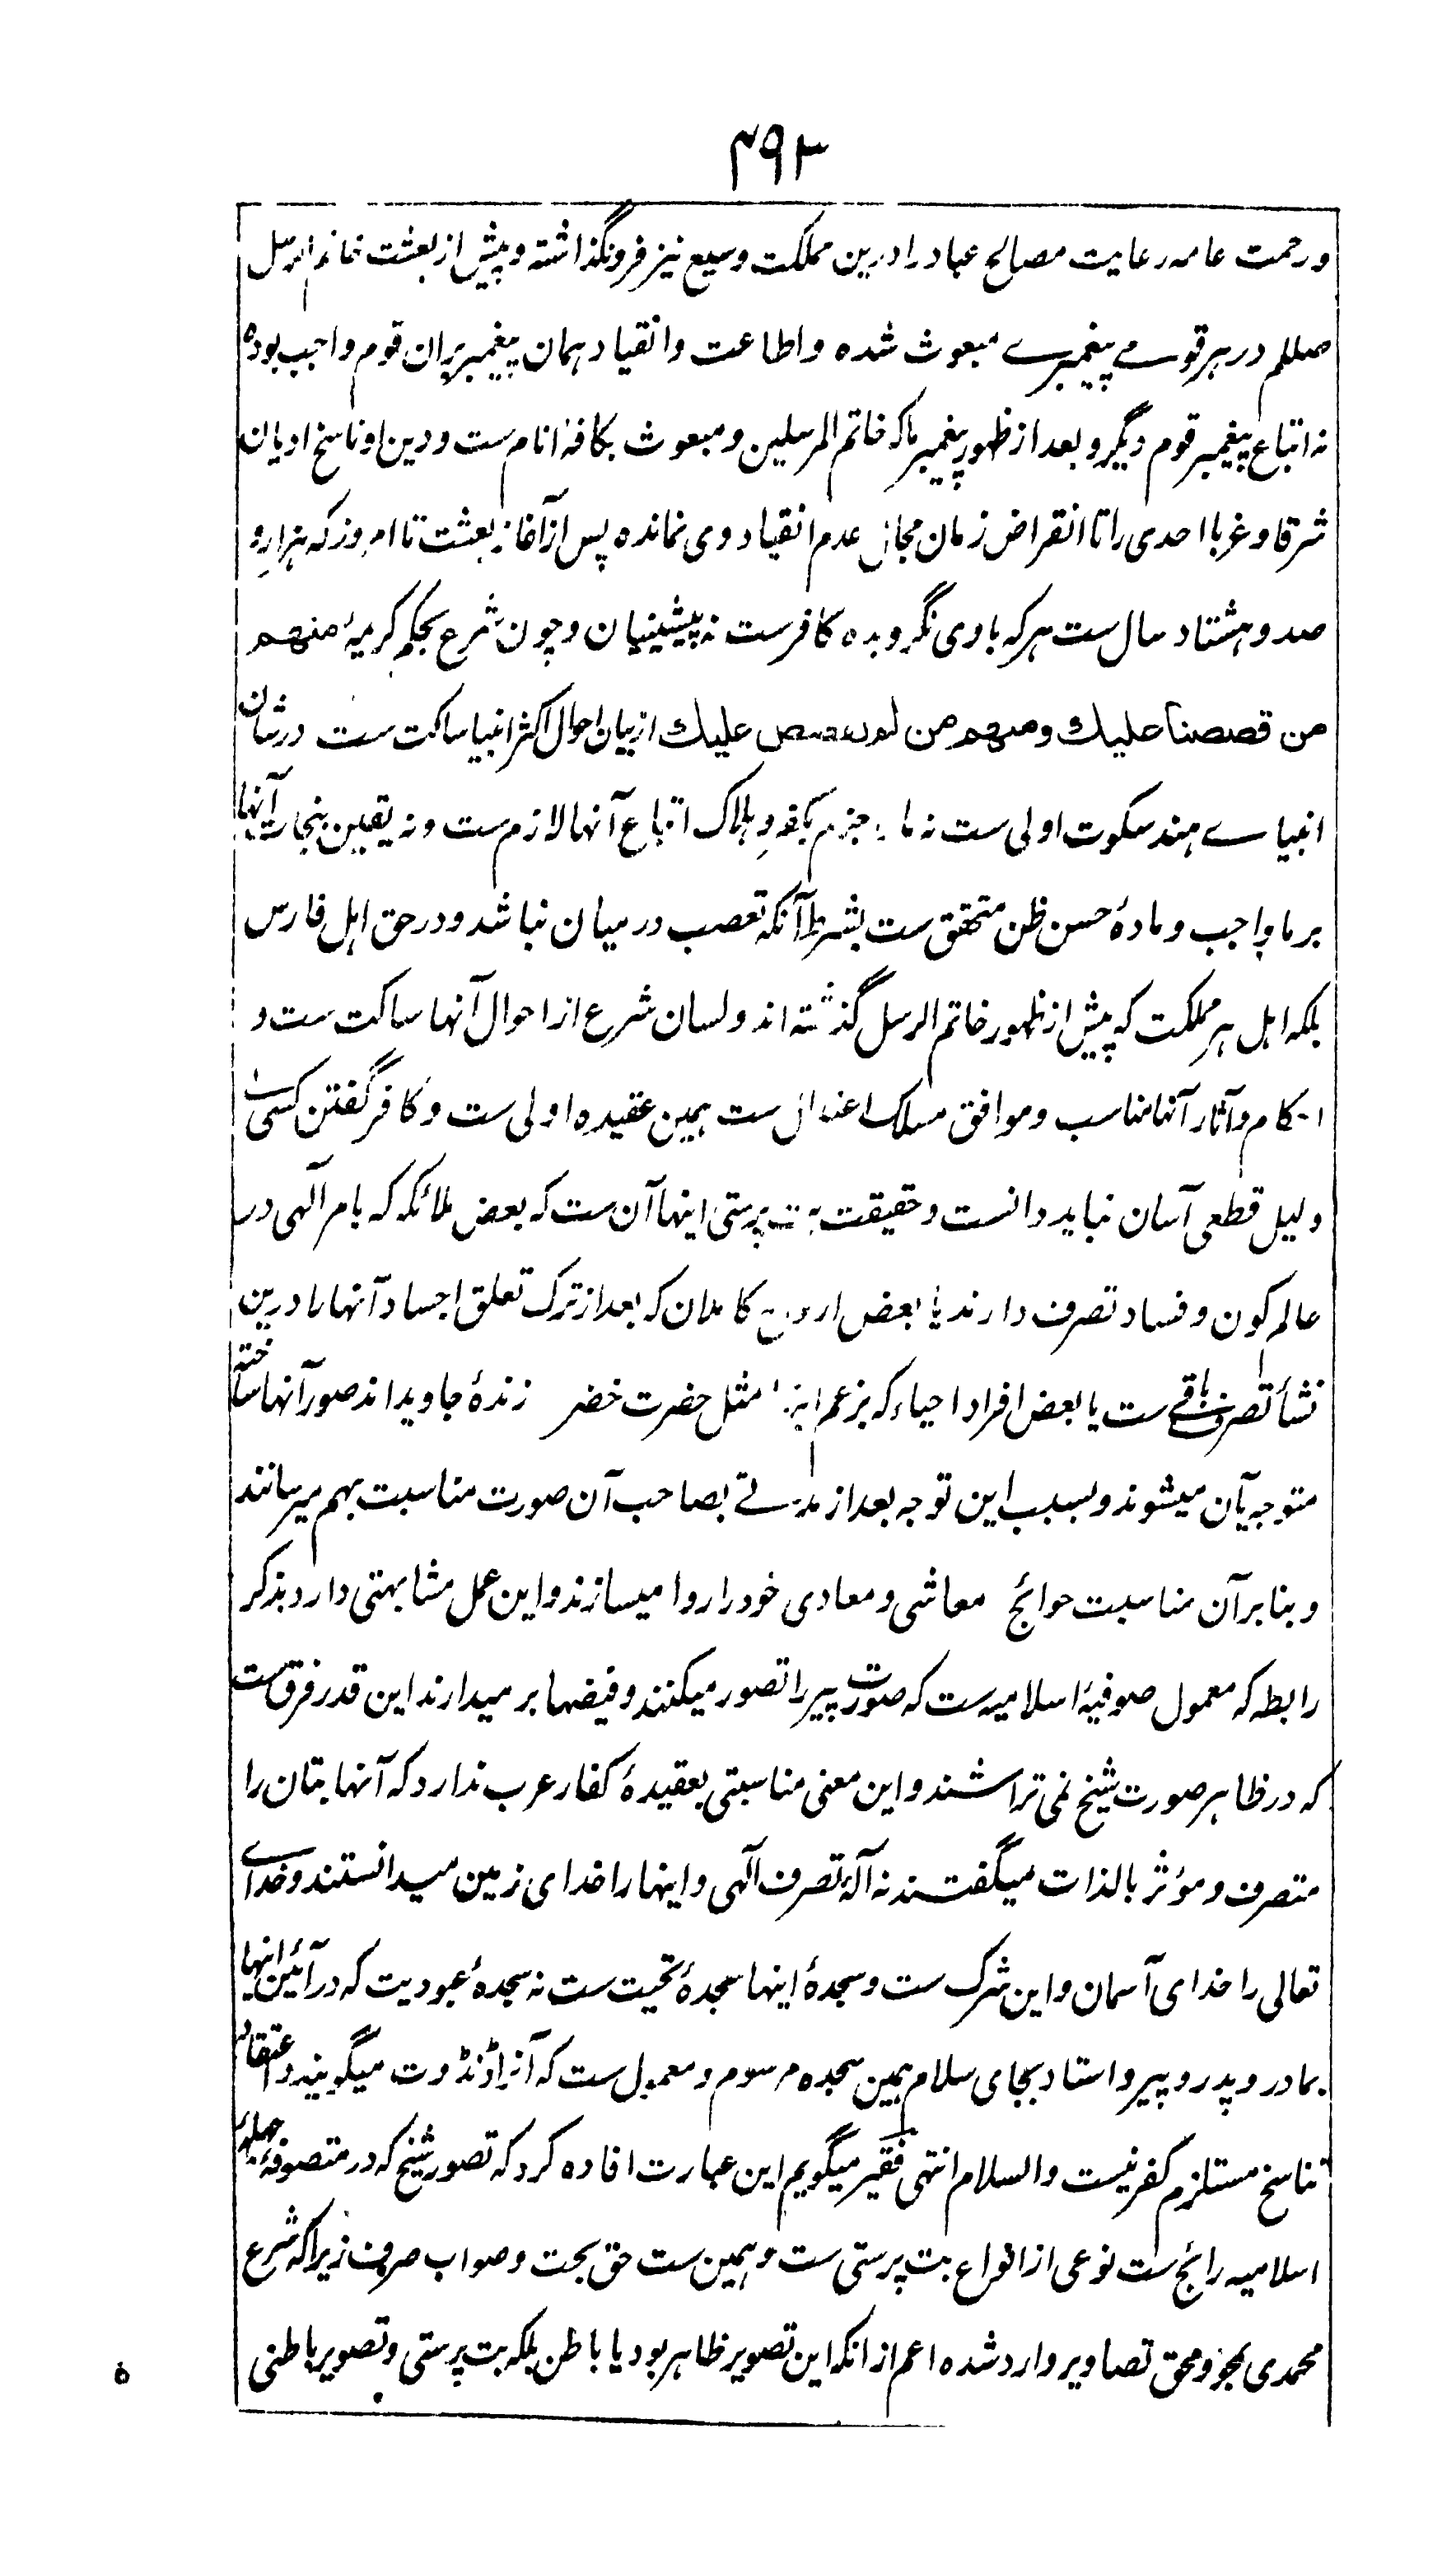 ۴۹۳
و رحمت عامه رعایت مصالح عباد را درین مملکت وسیع نیز فرونگذاشته و پیش از بعثت خاتم الرسل
صللم در هر قومے پیغمبرے مبعوث شده و اطاعت و انقیاد همان پیغمبر بران قوم واجب بوده
نه اتباع پیغمبر قوم دیگر و بعد از ظهور پیغمبر ما که خاتم المرسلین و مبعوث بکافهٔ انام ست و دین او ناسخ ادیان
شرقا و غربا احدی را تا انقراض زمان مجال عدم انقیاد وی نمانده پس از آغاز بعثت تا امروز که هزار و
صد و هشتاد سال ست هر که باوی نگرویده کافرست نه پیشینیان و چون شرع بحکم کریمهٔ منهم
من قصصنا علیك و منهم من لم نقصص علیك از بیان احوال اکثر انبیا ساکت ست در شان
انبیاے هند سکوت اولی ست نه ما را جزم بکفر و هلاک اتباع آنها لازم ست و نه یقین بنجات آنها
بر ما واجب و مادهٔ حسن ظن متحقق ست بشرط آنکه تعصب درمیان نباشد و در حق اهل فارس
بلکه اهل هر مملکت که پیش از ظهور خاتم الرسل گذشته اند و لسان شرع از احوال آنها ساکت ست و
احکام و آثار آنها مناسب و موافق مسلک اعتدال ست همین عقیده اولی ست و کافر گفتن کسی بے
دلیل قطعی آسان نباید دانست و حقیقت بت پرستی اینها آن ست که بعض ملائکه که بامر آلهی در
عالم کون و فساد تصرف دارند یا بعض ارواح کاملان که بعد از ترک تعلق اجساد آنها را درین
نشأ تصرف باقے ست یا بعض افراد احیاء که بزعم اینها مثل حضرت خضر زندهٔ جاوید اند صور آنها ساخته
متوجه بآن میشوند و بسبب این توجه بعد از مدتے بصاحب آن صورت مناسبت بهم میرسانند
و بنابر آن مناسبت حوائج معاشی و معادی خود را روا میسازند و این عمل مشابهتی دارد بذکر
رابطه که معمول صوفیهٔ اسلامیه ست که صورت پیر را تصور میکنند و فیضها بر میدارند این قدر فرق ست
که در ظاهر صورت شیخ نمی تراشند و این معنی مناسبتی بعقیدهٔ کفار عرب ندارد که آنها بتان را
متصرف و مؤثر بالذات میگفتند نه آلهٔ تصرف آلهی و اینها را خدای زمین میدانستند و خداے
تعالی را خدای آسمان و این شرک ست و سجدهٔ اینها سجدهٔ تحیت ست نه سجدهٔ عبودیت که در آئین اینها
بمادر و پدر و پیر و استاد بجای سلام همین سجده مرسوم و معمول ست که آنرا ڈنڈوت میگویند و اعتقاد
تناسخ مستلزم کفر نیست والسلام انتهی فقیر میگویم این عبارت افاده کرد که تصور شیخ که در متصوفهٔ جهلهٔ
اسلامیه رائج ست نوعی از انواع بت پرستی ست و همین ست حق بحت و صواب صرف زیرا که شرع
محمدی بمحو و محق تصاویر وارد شده اعم از انکه این تصویر ظاهر بود یا باطن بلکه بت پرستی و تصویر باطنی